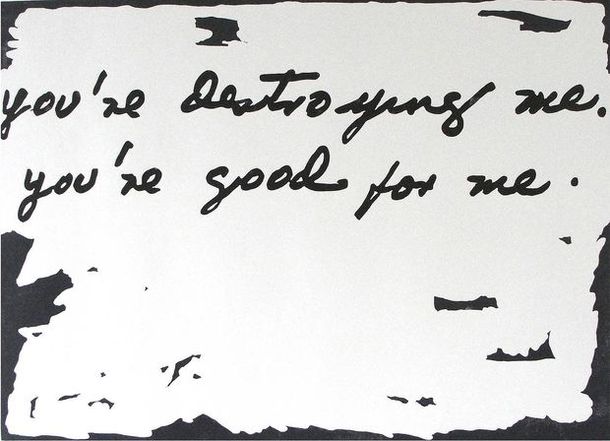 you're destroying me.
you're good for me.